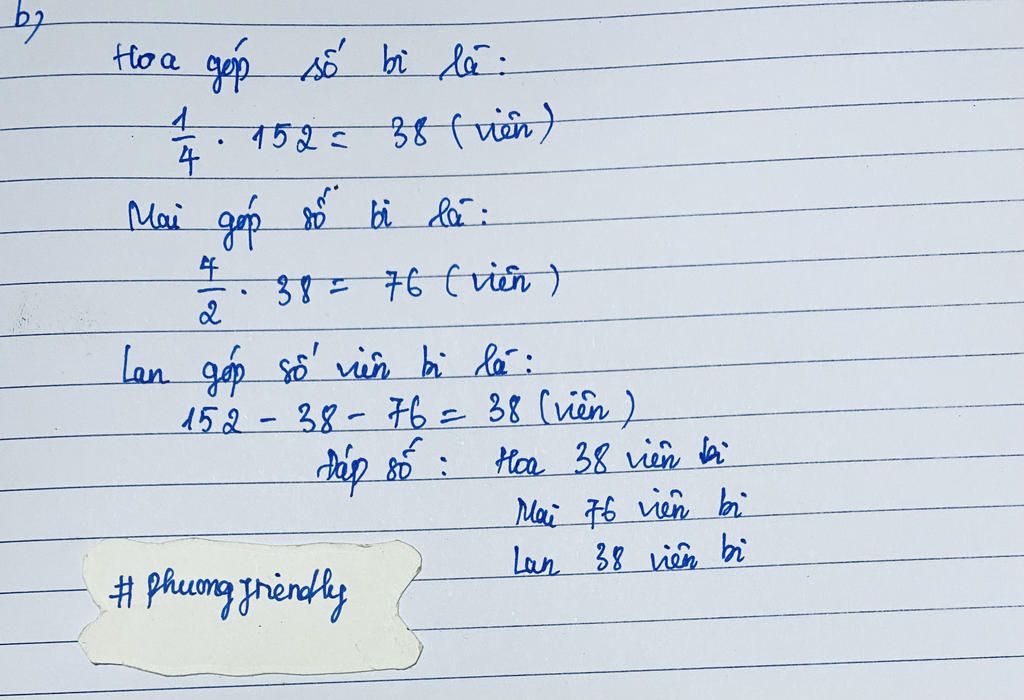 b)
Hoa góp số bi là:
1/4 . 152 = 38 (viên)
Mai góp số bi là:
4/2 . 38 = 76 (viên)
Lan góp số viên bi là:
152 - 38 - 76 = 38 (viên)
Đáp số : Hoa 38 viên bi
Mai 76 viên bi
Lan 38 viên bi
# phuongfriendly